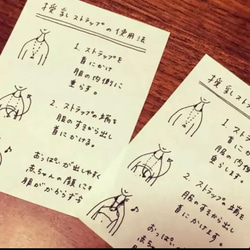 授乳ストラップの使用法
1. ストラップを
首にかけ
服の内側に
垂らす。
2. ストラップの端を
服のすそから出し
首にかける。
おっぱいが出しやすく
赤ちゃんの顔にも
服がかからず
授乳ストラップの
1. ストラップを
首にかけ
服の内側
垂らします
2. ストラップの
服のすそから出し
首にかけます。
おっぱいが出し
赤ちゃん
服が